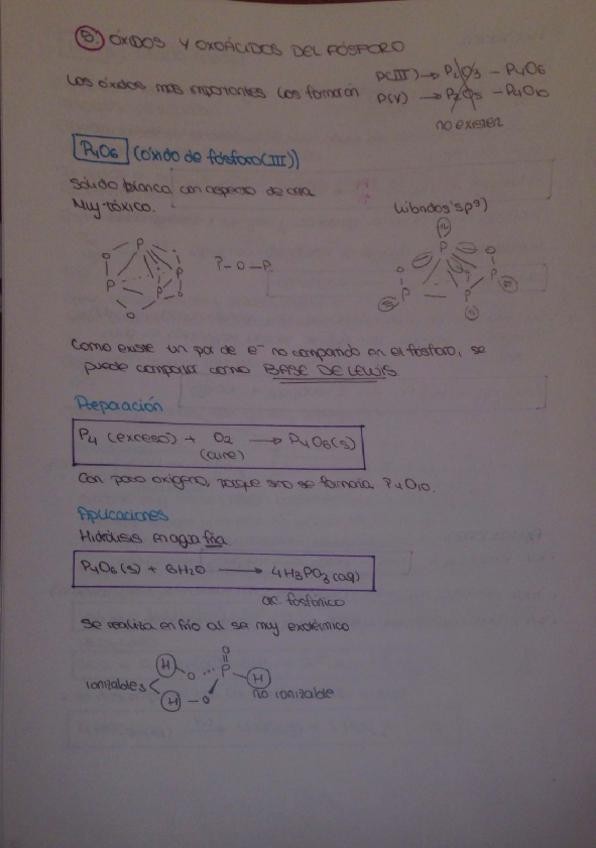 5. ÓXIDOS Y OXOÁCIDOS DEL FÓSFORO
Los óxidos más importantes los formarán P(III) → P2O3 - P4O6
P(V) → P2O5 - P4O10
no existen
P4O6 (óxido de fósforo(III))
Sólido blanco con aspecto de cera.
Muy tóxico.
híbridos sp3)
P
O
P
P
P
O
O
P-O-P
P
O
P
O
P
P
Como existe un par de e- no compartido en el fósforo, se
puede comportar como BASE DE LEWIS
Preparación
P4 (exceso) + O2 → P4O6(s)
(aire)
Con poco oxígeno, porque sino se formaría P4O10.
Aplicaciones
Hidrólisis en agua fría.
P4O6(s) + 6H2O → 4H3PO3(aq)
ac. fosfónico
Se realiza en frío al ser muy exotérmico
O
H O P H
ionizables
no ionizable
H - O